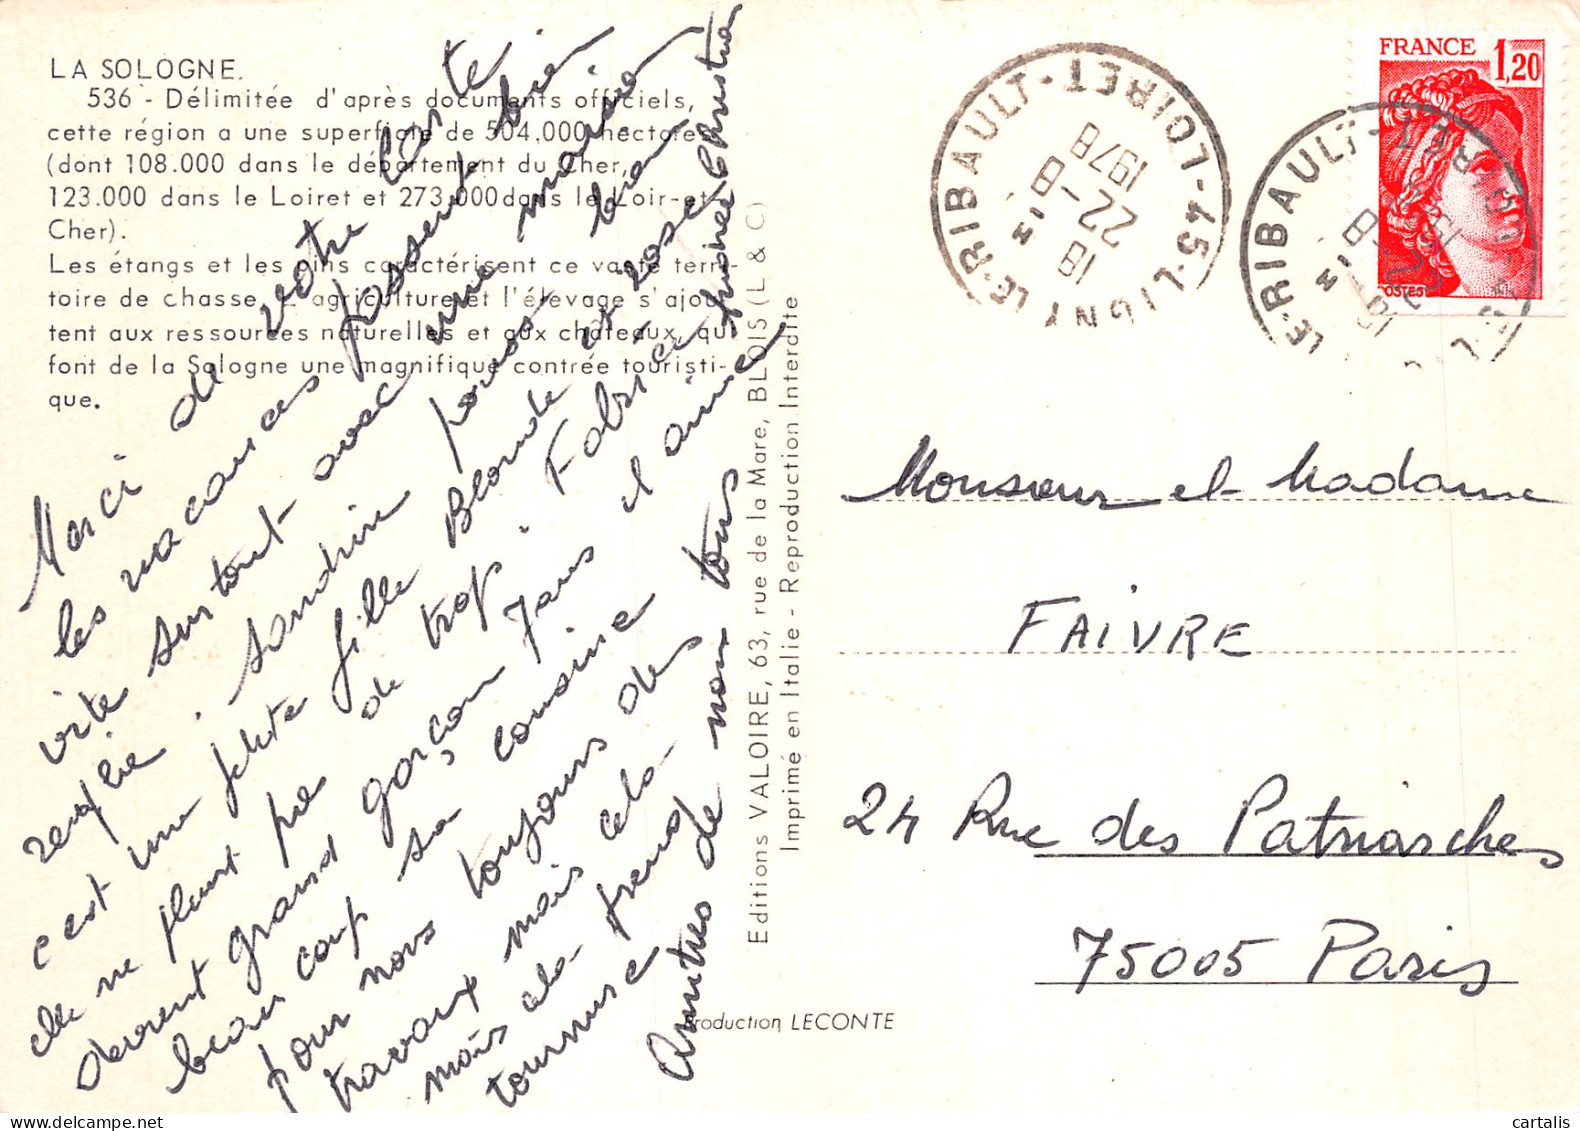 LA SOLOGNE.
536 - Délimitée d'après documents officiels,
cette région a une superficie de 504.000 hectares
(dont 108.000 dans le département du Cher,
123.000 dans le Loiret et 273.000 dans le Loir-et-
Cher).
Les étangs et les pins caractérisent ce vaste terri-
toire de chasse. L'agriculture et l'élevage s'ajou-
tent aux ressources naturelles et aux châteaux, qui
font de la Sologne une magnifique contrée touristi-
que.
Merci de votre carte
les vacances passent bien
vite surtout avec une maison
remplie. Sandrine pousse bien
c'est une petite fille Blonde et rose
elle ne pleure pas de trop. Fabrice
devient grand garçon 7 ans il aime
beaucoup sa cousine
pour nous toujours des
travaux mais cela
mais cela prend
tournure
Amitiés de nous tous
Christian
Editions VALOIRE, 63, rue de la Mare, BLOIS (L & C)
Imprimé en Italie - Reproduction Interdite
Production LECONTE
FRANCE 1,20
POSTES
45-LIGNY LE-RIBAULT - LOIRET
18 H
22-8
1978
45-LIGNY LE-RIBAULT - LOIRET
Monsieur et Madame
FAIVRE
24 Rue des Patriarches
75005 Paris
cartalis